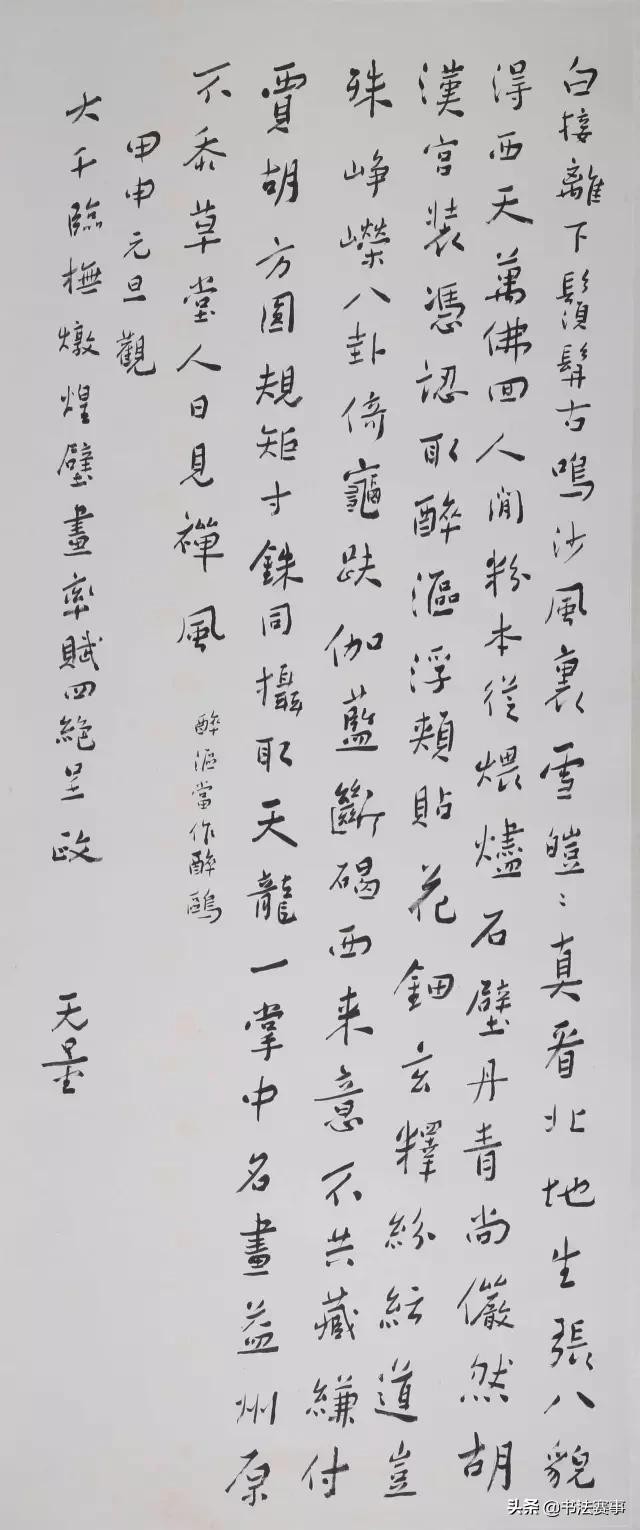 白接離下鬚髯古鳴沙風裏雪皚〻真看北地生張八貌
得西天萬佛回人間粉本從煨燼石壁丹青尚儼然胡
漢宮裝憑認取醉漚浮頰貼花鈿玄釋紛紜道豈
殊崢嶸八卦倚龜趺伽藍斷碣西来意不共藏縑付
賈胡方圓規矩寸銖同攝取天龍一掌中名畫益州原
不忝草堂人日見禪風
醉漚當作醉鷗
甲申元旦觀
大千臨橅燉煌壁畫率賦四絕呈政
无量
头条 @书法赛事